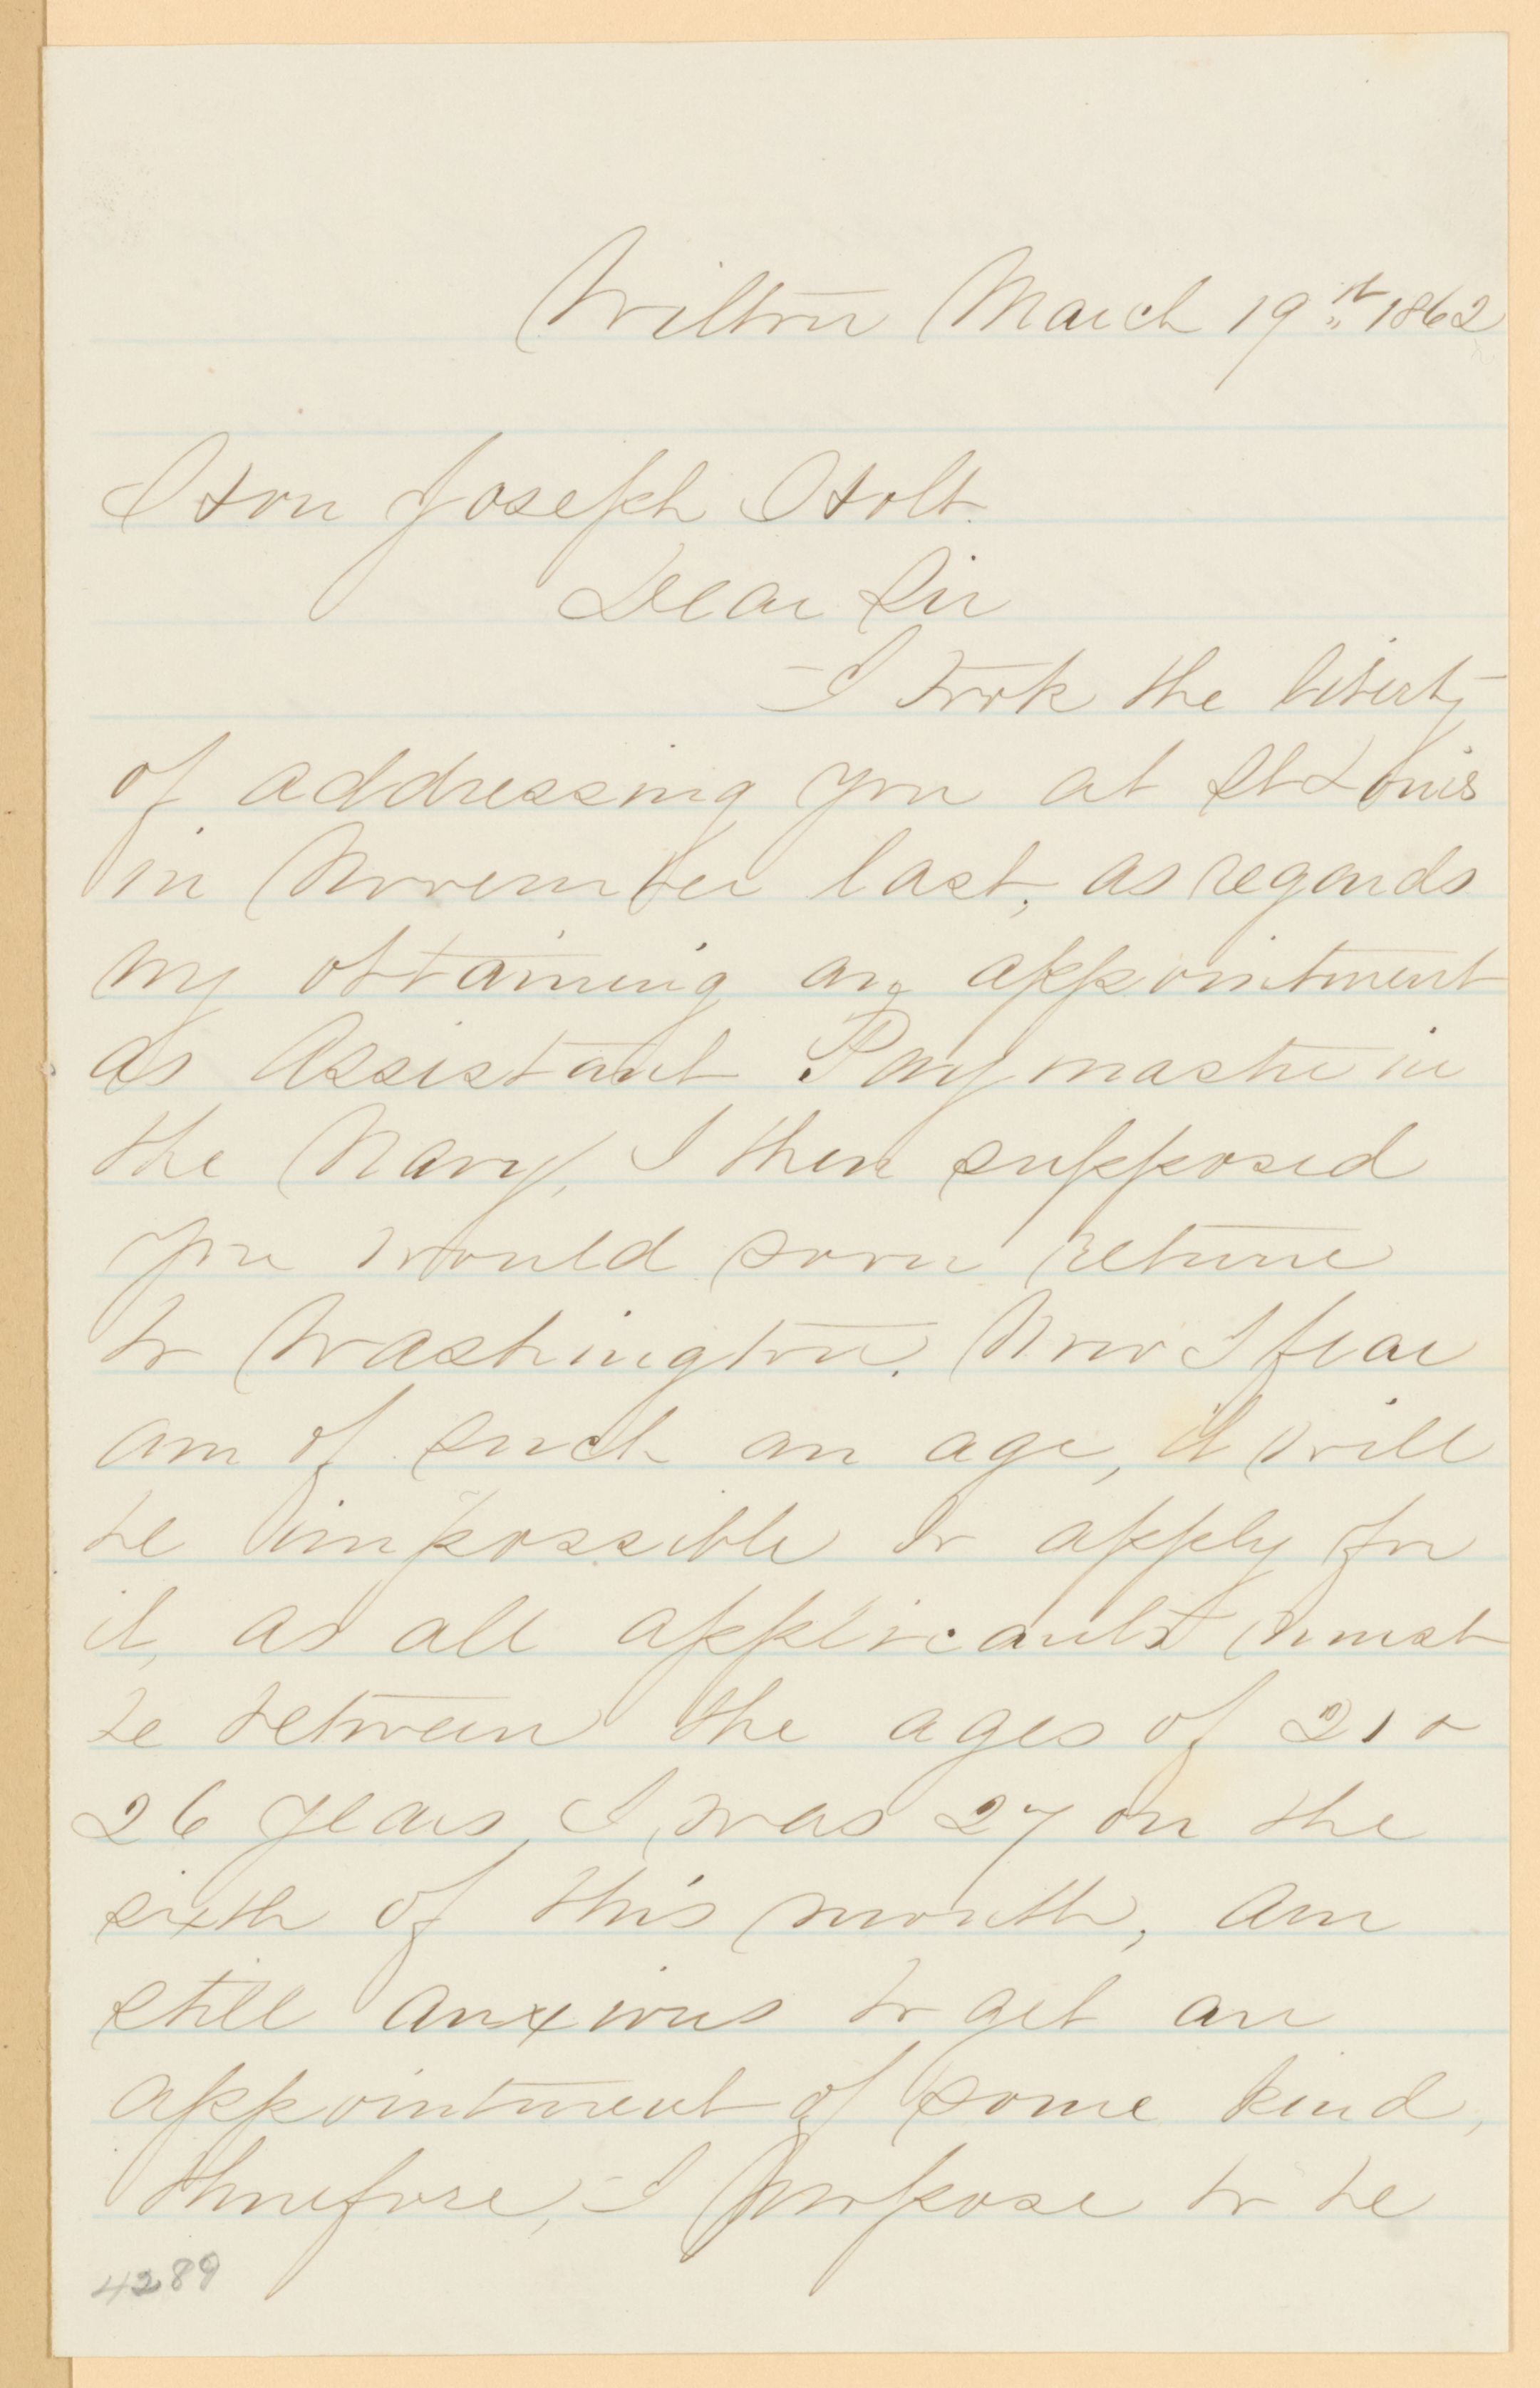 Wilton March 19th 1862
Hon Joseph Holt.
Dear Sir
I took the liberty
of addressing you at St Louis
in November last, as regards
my obtaining an appointment
as Assistant Paymaster in
the Navy, I then supposed
you would soon return
to Washington. Now I fear
am of such an age, it will
be impossible to apply for
it, as all applicants must
be between the ages of 21 &
26 years, I, was 27 on the
sixth of this month, am
still anxious to get an
appointment of some kind,
therefore, I purpose to be
4289